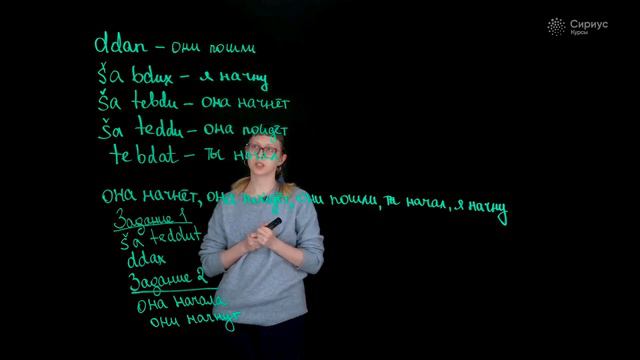 Сириус
Курсы
ddan – они пошли
ša bdux – я начну
ša tebdu – она начнёт
ša teddu – она пойдёт
tebdat – ты начал
она начнёт, она пойдёт, они пошли, ты начал, я начну
Задание 1
ša teddut
ddax
Задание 2
она начала
они начнут